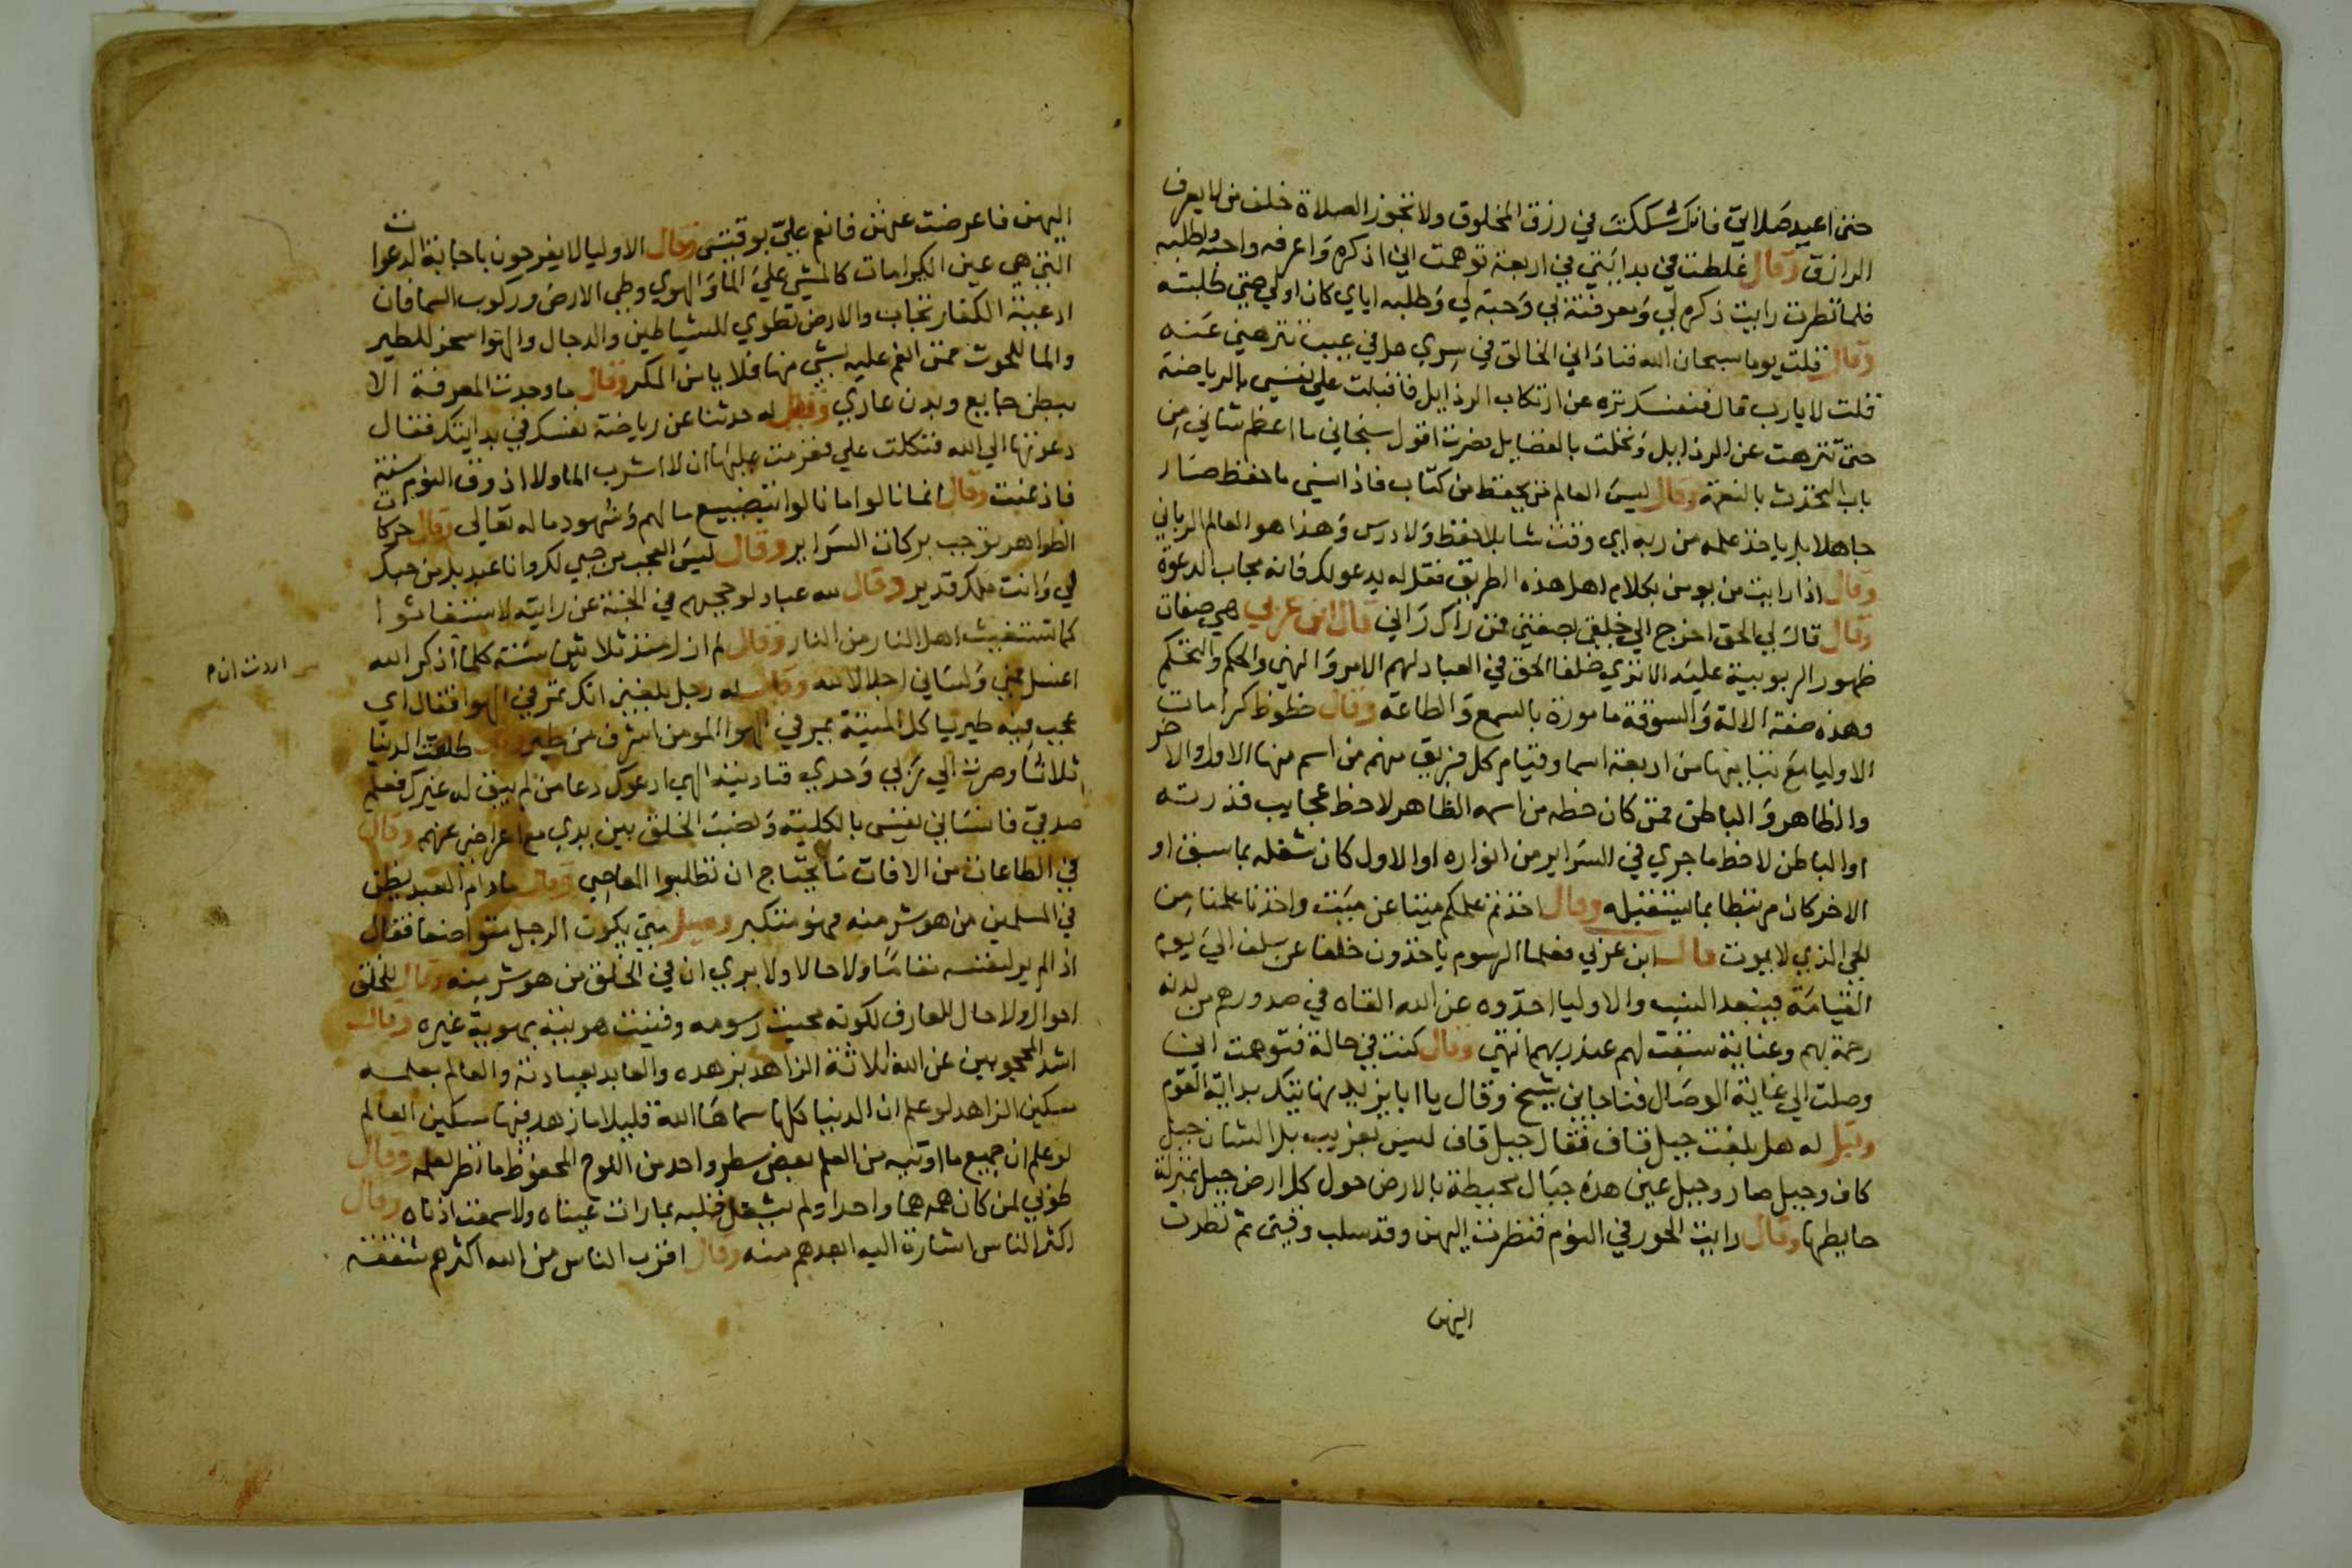 حتى اعيد صلاتي فانك شككت في رزق المخلوق ولا تجوز الصلاة خلف من لا يعرف
الرازق وقال غلطت في بدايتي في اربعة توهمت اني اذكره واعرفه واحبه واطلبه
فلما نظرت رايت ذكره لي ومعرفته بي وحبه لي وطلبه اياي كان اولي حتي طلبته
وقال قلت يوما سبحان الله فناداني الخالق في سري هل في عيب تنزهني عنه
قلت لا يارب قال فنفسك نزه عن ارتكاب الرذايل فاقبلت علي نفسي بالرياضة
حتى تنزهت عن الرذايل وتحلت بالفضايل فصرت اقول سبحاني ما اعظم شاني من
باب التحدث بالنعمة وقال ليس العالم من يحفظ من كتاب فاذا نسي ما حفظ صار
جاهلا بل ياخذ علمه من ربه اي وقت شا بلا حفظ ولا درس وهذا هو العالم الرباني
وقال اذا رايت من يومن بكلام اهل هذه الطريق فقل له يدعو لك فانه مجاب الدعوة
وقال قال لي الحق اخرج الي خلقي بصفتي فمن راك راني قال ابن عربي هي صفات
ظهور الربوبية عليه الا تري خلفا الحق في العباد لهم الامر والنهي والحكم والتحكم
وهذه صفة الاله والسوقة مامورة بالسمع والطاعة وقال حظوظ كرامات
الاوليا مع تباينها من اربعة اسما وقيام كل فريق منهم من اسم منها الاول والاخر
والظاهر والباطن فمن كان حظه من اسمه الظاهر لاحظ عجايب قدرته
او الباطن لاحظ ما جري في السراير من انواره او الاول كان شغله بما سبق او
الاخر كان مرتبطا بما يستقبله وقال اخذتم علمكم ميتا عن ميت واخذنا علمنا من
الحي الذي لا يموت قال ابن عربي فعلما الرسوم ياخذون خلفا عن سلف الي يوم
القيامة فيبعد النسب والاوليا اخذوه عن الله القاه في صدورهم من لدنه
رحمة بهم وعناية سبقت لهم عند ربهم انتهي وقال كنت في حالة فتوهمت اني
وصلت الي غاية الوصال فناجاني شيخ وقال يا ابا يزيد نهايتك بداية القوم
وقيل له هل بلغت جبل قاف فقال جبل قاف ليس بغريب بل الشان جبل
كاف وجبل صاد وجبل عين هذه جبال محيطة بالارض حول كل ارض جبل بمنزلة
حايطها وقال رايت الحور في النوم فنظرت اليهن وقد سلب وقتي ثم نظرت
اليهن
اليهن فاعرضت عنهن فانعم علي بوقتي وقال الاوليا لا يفرحون باجابة الدعوات
التي هي عين الكرامات كالمشي علي الما والهوي وطي الارض وركوب السما فان
ادعية الكفار تجاب والارض تطوي للشياطين والدجال والهوا سخر للطير
والما للحوت فمن انعم عليه بشي منها فلا يامن المكر وقال ما وجدت المعرفة الا
ببطن جايع وبدن عاري وقيل له حدثنا عن رياضة نفسك في بدايتك فقال
دعوتها الي الله فتكلت علي فعزمت عليها ان لا اشرب الما ولا اذوق النوم سنة
فاذعنت وقال انما نالوا ما نالوا بتضييع ما لهم وشهود ما له تعالي وقال حركات
الظواهر توجب بركات السراير وقال ليس العجب من حبي لك وانا عبد بل من حبك
لي وانت ملك قدير وقال لله عباد لو حجبهم في الجنة عن رايته لاستغاثوا
كما تستغيث اهل النار من النار وقال لم ازل منذ ثلاثين سنة كلما اذكر الله
اردت ان م
اغسل فمي ولساني اجلالا لله وقال له رجل بلغني انك تمر في الهوا فقال اي
عجب فيه طير ياكل الميتة يمر في الهوا المومن اشرف من طير وقال طلقت الدنيا
ثلاثا وصرت الي ربي وحدي فناديته الهي ادعوك دعا من لم يبق له غيرك فعلم
صدقي فانساني نفسي بالكلية ونصب الخلق بين يدي مع اعراضي عنهم وقال
في الطاعات من الافات ما يحتاج ان تطلبوا المعاصي وقال ما دام العبد يظن
في المسلمين من هو شر منه فهو متكبر وقيل متي يكون الرجل متواضعا فقال
اذا لم ير لنفسه مقاما ولا حالا ولا يري ان في الخلق من هو شر منه وقال للخلق
احوال ولا حال للعارف لكونه محيت رسومه وفنيت هويته بهوية غيره وقال
اشد المحجوبين عن الله ثلاثة الزاهد بزهده والعابد بعبادته والعالم بعلمه
مسكين الزاهد لو علم ان الدنيا كلها سماها الله قليلا ما زهد فيها مسكين العالم
لو علم ان جميع ما اوتيه من العلم بعض سطر واحد من اللوح المحفوظ ما نظر لعلمه وقال
طوبي لمن كان همه هما واحدا ولم يشغل قلبه بما رات عيناه ولا سمعت اذناه وقال
اكثر الناس اشارة اليه ابعدهم منه وقال اقرب الناس من الله اكثرهم شفقة